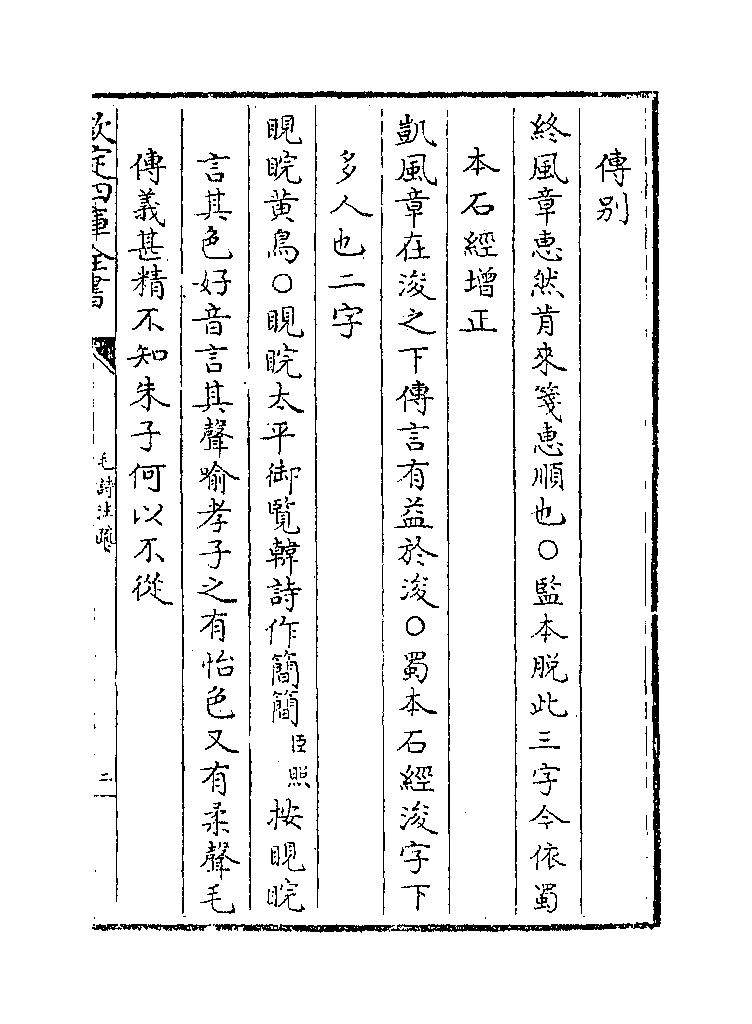 傳别
終風章惠然肯來箋惠順也○監本脱此三字今依蜀
本石經增正
凱風章在浚之下傳言有益於浚○蜀本石經浚字下
多人也二字
睍睆黄鳥○睍睆太平御覧韓詩作簡簡臣照按睍睆
言其色好音言其聲喻孝子之有怡色又有柔聲毛
傳義甚精不知朱子何以不從
欽定四庫全書
毛詩注疏
二